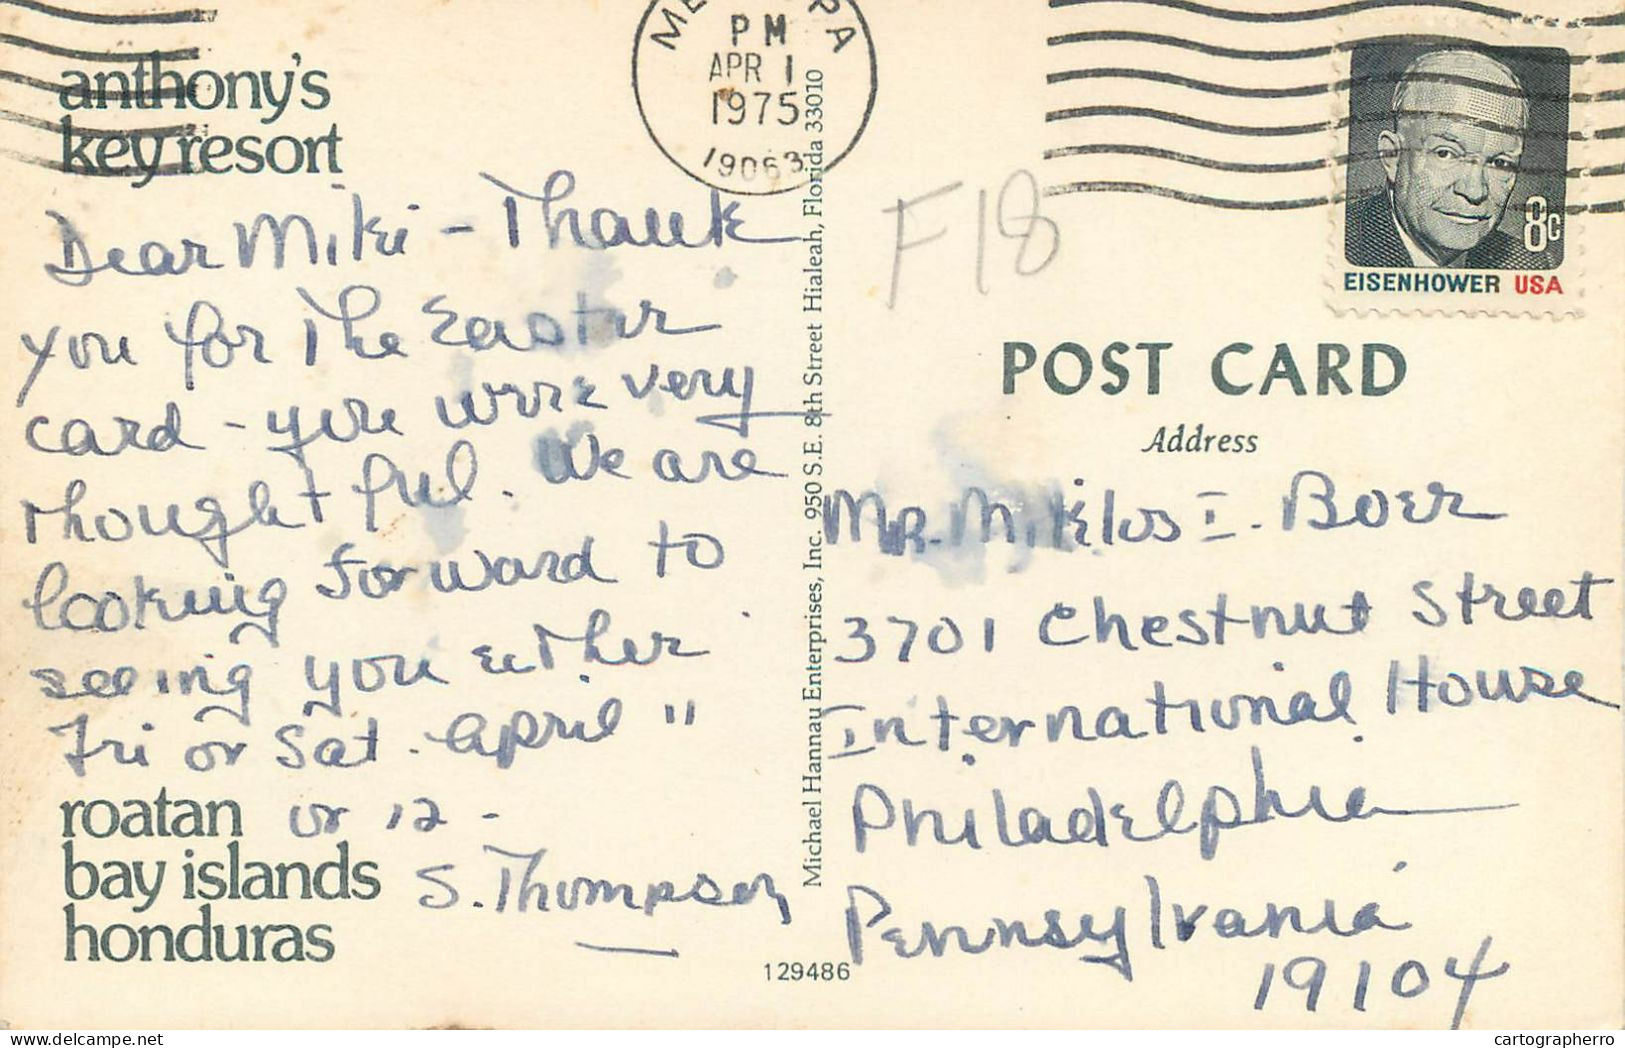 anthony's
key resort
PM
APR 1
1975
19063
Dear Miki - Thank
you for The Easter
card - you were very
thoughtful. We are
looking forward to
seeing you either
Fri or Sat. April 11
or 12 -
S. Thompson
roatan
bay islands
honduras
Michael Hannau Enterprises, Inc. 950 S.E. 8th Street Hialeah, Florida 33010
129486
F18
8c
EISENHOWER USA
POST CARD
Address
Mr. Miklos I. Boer
3701 Chestnut Street
International House
Philadelphia
Pennsylvania
19104
cartographerro